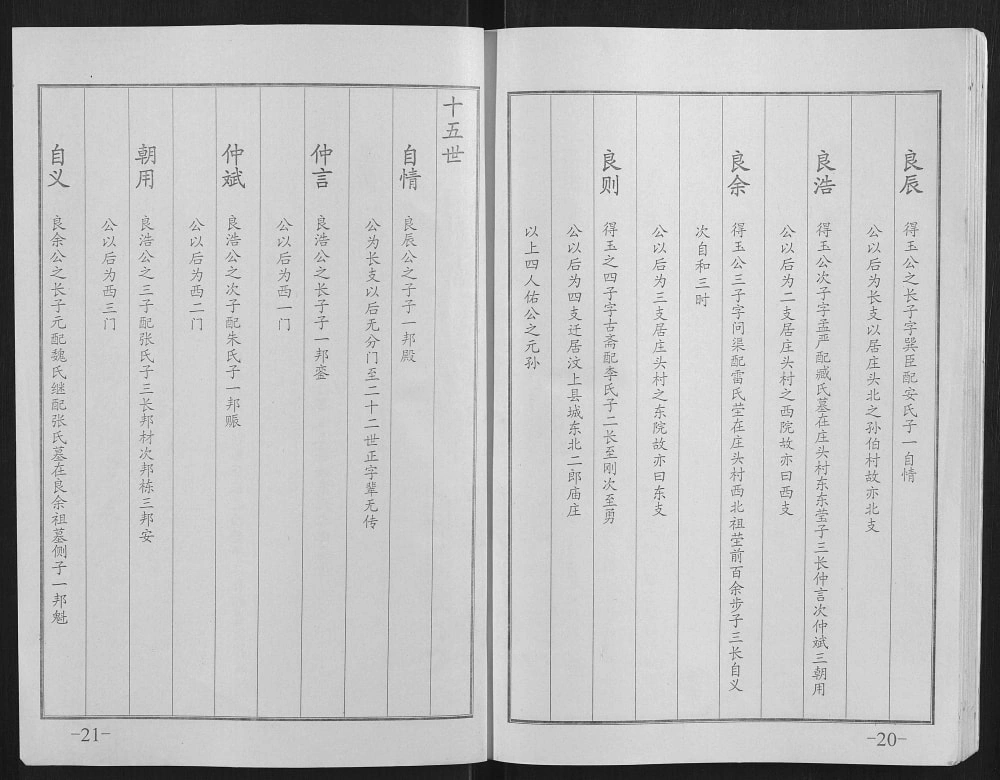 良辰 得玉公之长子字巽臣配安氏子一自情
公以后为长支以居庄头北之孙伯村故亦北支
良浩 得玉公次子字孟严配臧氏墓在庄头村东东莹子三长仲言次仲斌三朝用
公以后为二支居庄头村之西院故亦曰西支
良余 得玉公三子字问渠配雷氏茔在庄头村西北祖茔前百余步子三长自义
次自和三时
公以后为三支居庄头村之东院故亦曰东支
良则 得玉之四子字古斋配李氏子二长至刚次至勇
公以后为四支迁居汶上县城东北二郎庙庄
以上四人佑公之元孙
-20-
十五世
自情 良辰公之子子一邦殿
公为长支以后无分门至二十二世正字辈无传
仲言 良浩公之长子子一邦銮
公以后为西一门
仲斌 良浩公之次子配朱氏子一邦赈
公以后为西二门
朝用 良浩公之三子配张氏子三长邦材次邦栋三邦安
公以后为西三门
自义 良余公之长子元配魏氏继配张氏墓在良余祖墓侧子一邦魁
-21-